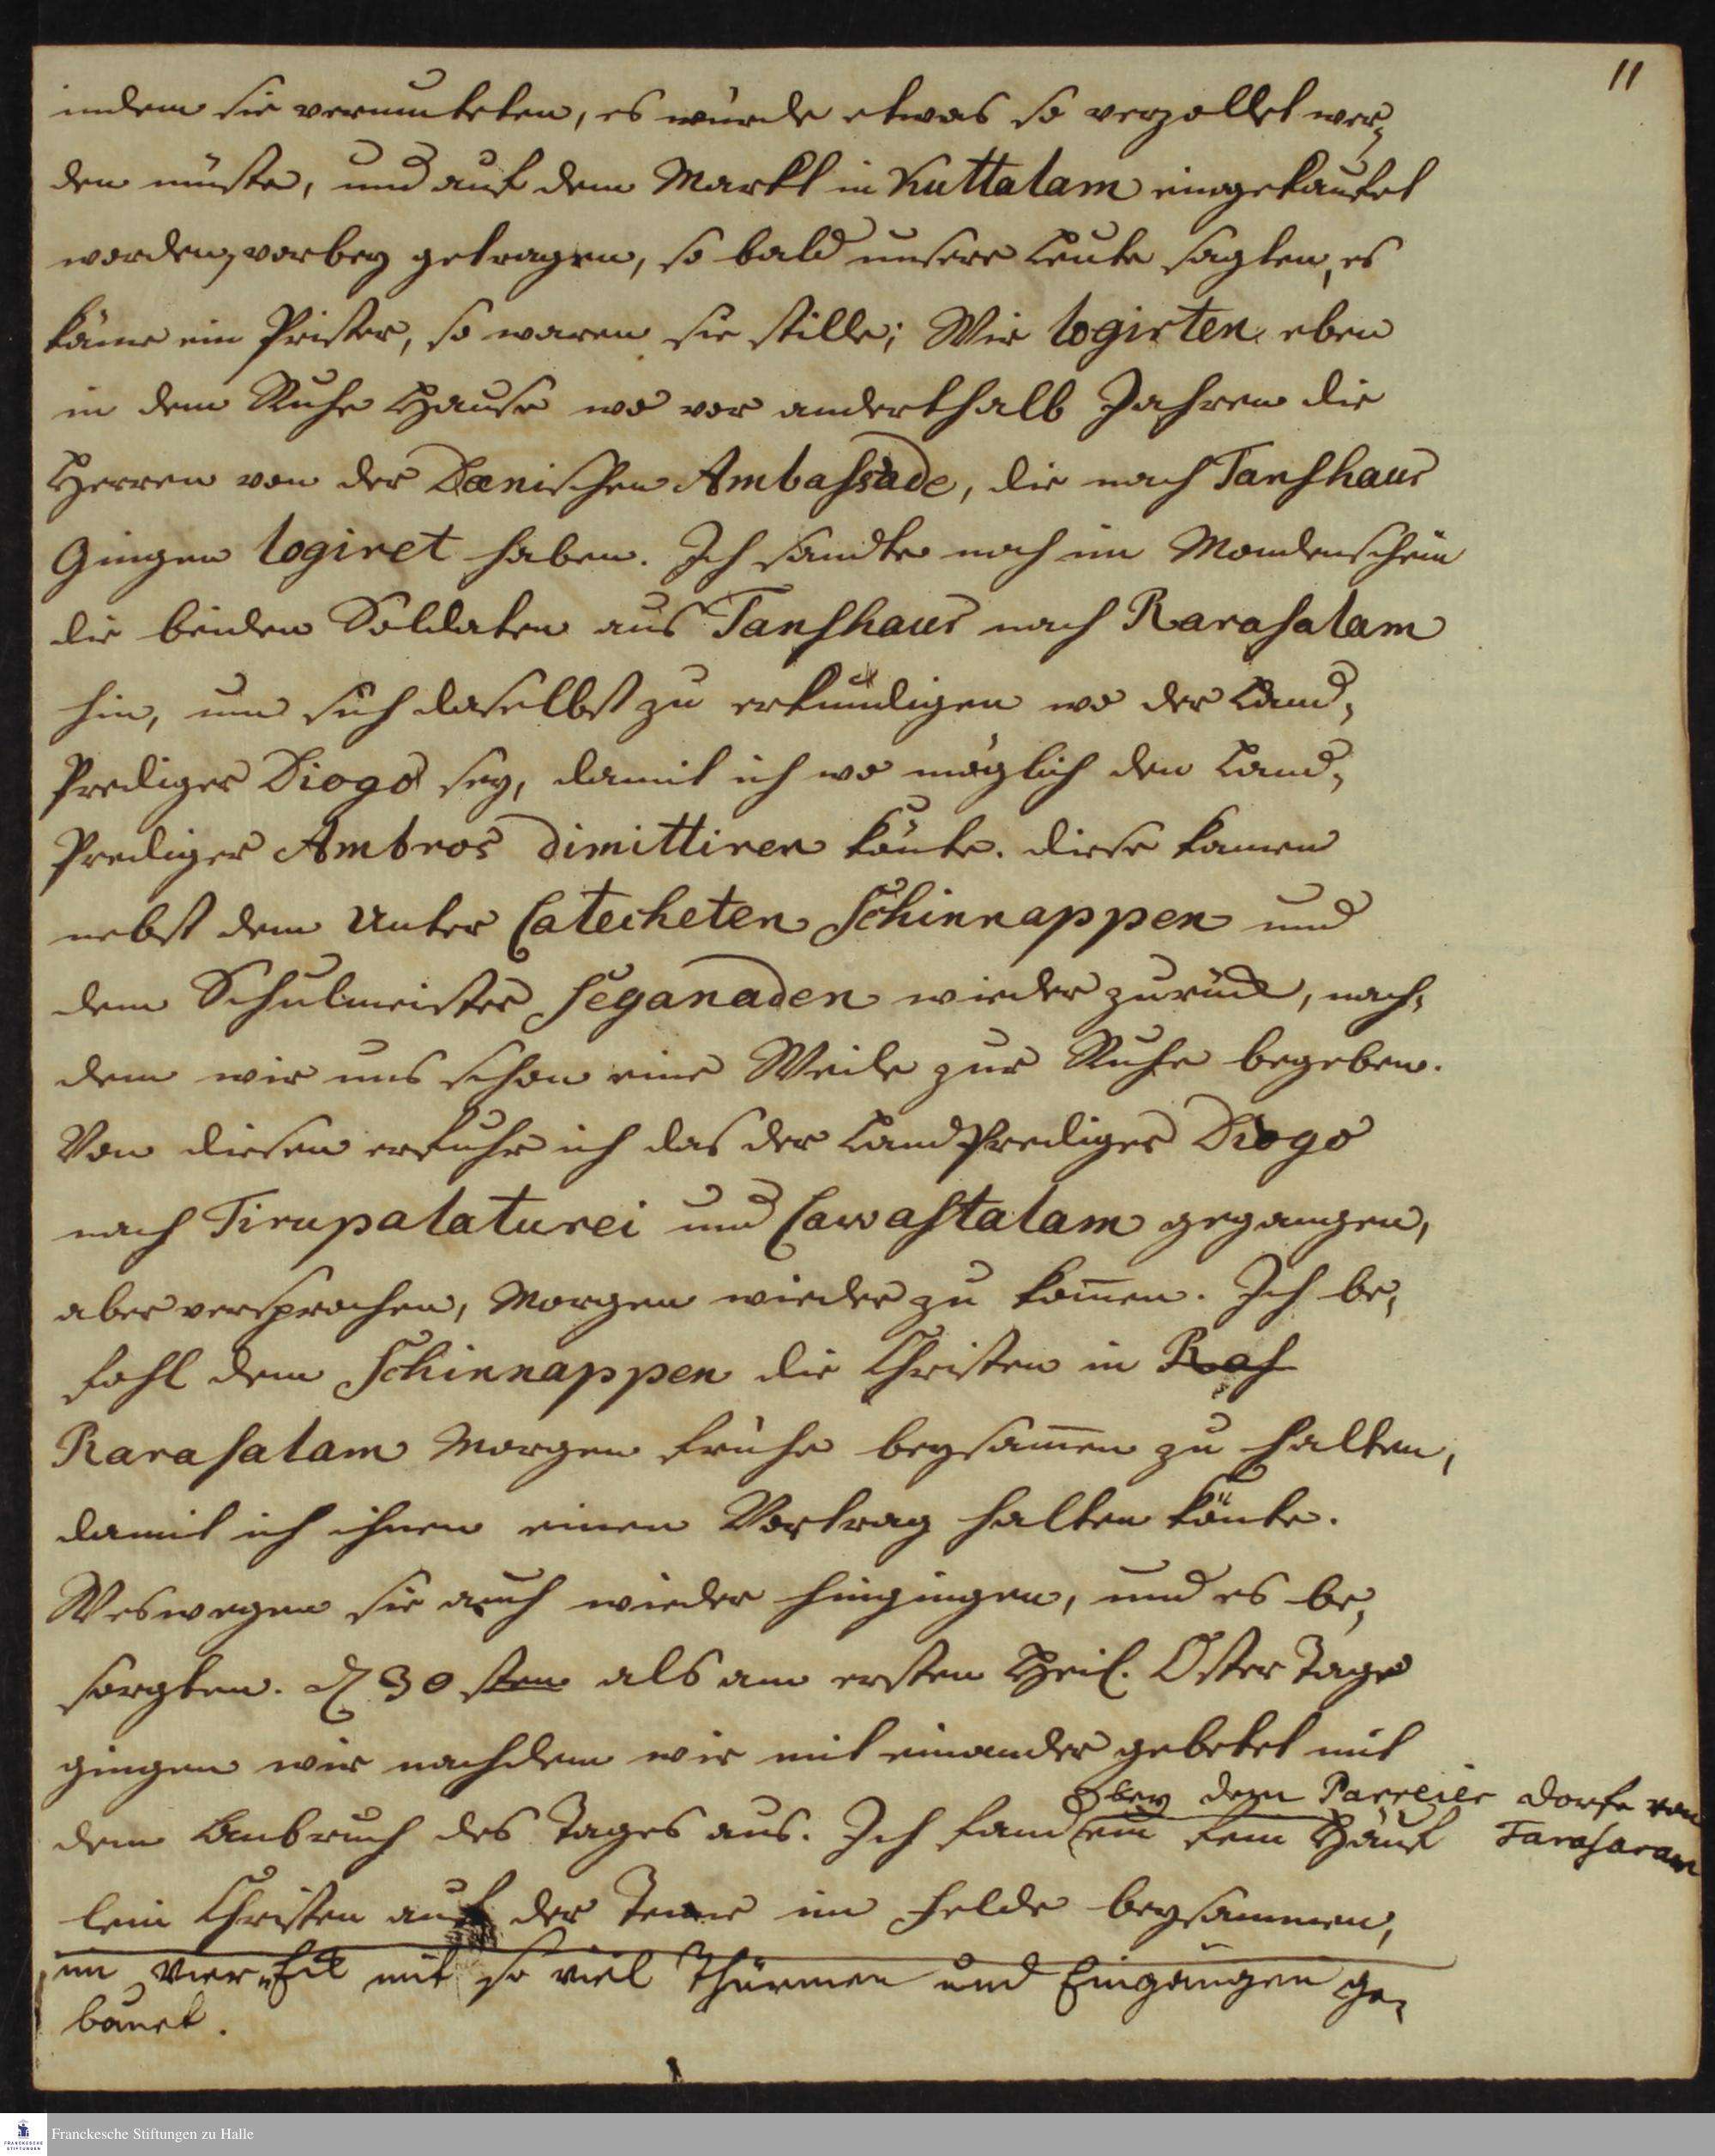 11
indem sie vermuteten, es würde etwas so verzollet wer-
den müste, und auf dem Markt in Kuttalam eingekaufet
worden, vorbey getragen, so bald unsere Leute sagten, es
käme ein Prister, so waren sie stille; Wir logirten eben
in dem Ruhe Hause wo vor anderthalb Jahren die
Herren von der Dænischen Ambassade, die nach Tanshaur
Gingen logiret haben. Ich sandte noch im Mondenschein
die beiden Soldaten aus Tanshaur nach Rarasalam
hin, um sich daselbst zu erkundigen wo der Land-
Prediger Diogo sey, damit ich wo möglich den Land-
Prediger Ambros dimittiren könte. diese kamen
nebst dem Unter Catecheten Schinnappen und
dem Schulmeister Seganaden wieder zurück, nach-
dem wir uns schon eine Weile zur Ruhe begeben.
Von diesen erfuhr ich das der Land Prediger Diogo
nach Tirupalaturei und Cawastalam gegangen,
aber versprochen, Morgen wieder zu kom̄en. Ich be-
fohl dem Schinnappen die Christen in Ras
Rarasalam Morgen frühe beysam̄en zu halten,
damit ich ihnen einen Vortrag halten könte.
Weswegen sie auch wieder hingingen, und es be-
sorgten. d 30 sten als am ersten Heil. Oster Tage
gingen wir nachdem wir mit einander gebetet mit
bey dem Parreier dorfe von
dem Anbruch des Tages aus. Ich fand ein fein Häuf
Tarasaram
lein Christen auf der Tenne im Felde beysammen,
im Vier Eck mit so viel Thürmen und Eingängen ge-
bauet.
Franckesche Stiftungen zu Halle
FRANCKESCHE
STIFTUNGEN